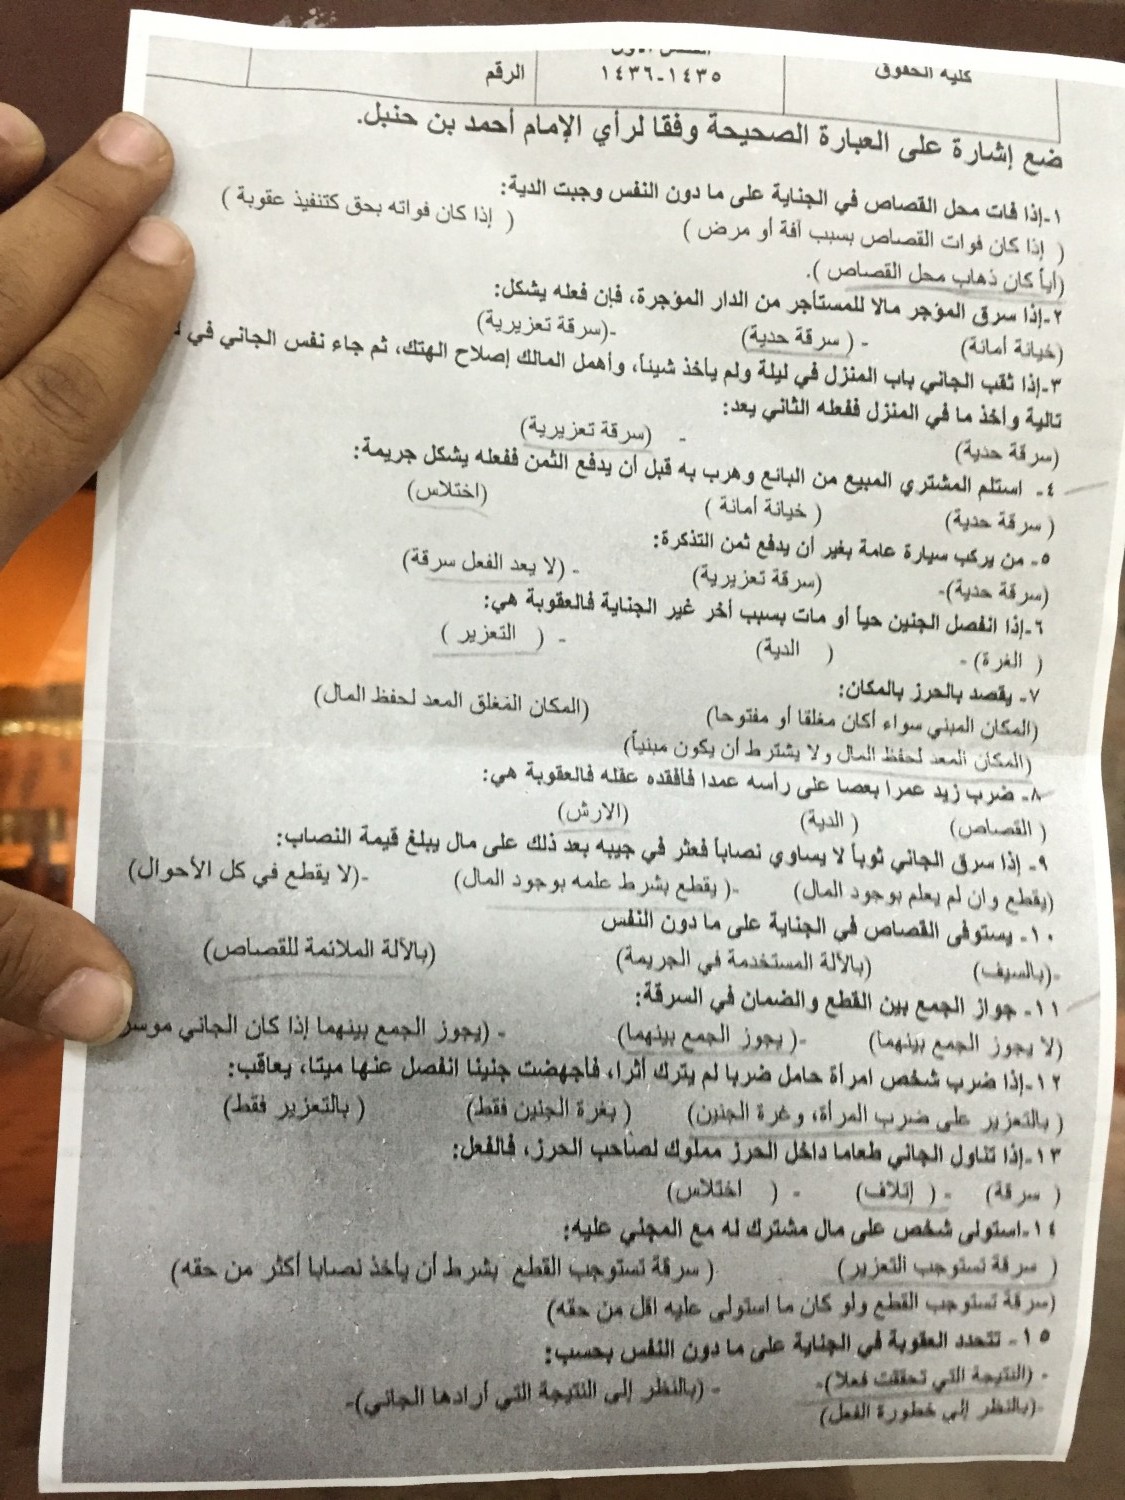 كلية الحقوق
الفصل الأول
١٤٣٥-١٤٣٦
الرقم
ضع إشارة على العبارة الصحيحة وفقا لرأي الإمام أحمد بن حنبل.
١-إذا فات محل القصاص في الجناية على ما دون النفس وجبت الدية:
( إذا كان فوات القصاص بسبب آفة أو مرض ) ( إذا كان فواته بحق كتنفيذ عقوبة )
(أياً كان ذهاب محل القصاص ).
٢-إذا سرق المؤجر مالا للمستأجر من الدار المؤجرة، فإن فعله يشكل:
(خيانة أمانة) - ( سرقة حدية) -(سرقة تعزيرية)
٣-إذا ثقب الجاني باب المنزل في ليلة ولم يأخذ شيئا، وأهمل المالك إصلاح الهتك، ثم جاء نفس الجاني في
تالية وأخذ ما في المنزل ففعله الثاني يعد:
(سرقة حدية) - (سرقة تعزيرية)
٤- استلم المشتري المبيع من البائع وهرب به قبل أن يدفع الثمن ففعله يشكل جريمة:
( سرقة حدية) ( خيانة أمانة ) (اختلاس)
٥- من يركب سيارة عامة بغير أن يدفع ثمن التذكرة:
(سرقة حدية)- (سرقة تعزيرية) - (لا يعد الفعل سرقة)
٦-إذا انفصل الجنين حياً أو مات بسبب أخر غير الجناية فالعقوبة هي:
( الغرة) - ( الدية) - ( التعزير )
٧- يقصد بالحرز بالمكان:
(المكان المبني سواء أكان مغلقا أو مفتوحا) (المكان المغلق المعد لحفظ المال)
(المكان المعد لحفظ المال ولا يشترط أن يكون مبنياً)
٨- ضرب زيد عمرا بعصا على رأسه عمدا فأفقده عقله فالعقوبة هي:
( القصاص) ( الدية) (الارش)
٩- إذا سرق الجاني ثوباً لا يساوي نصاباً فعثر في جيبه بعد ذلك على مال يبلغ قيمة النصاب:
(يقطع وان لم يعلم بوجود المال) -( يقطع بشرط علمه بوجود المال) -(لا يقطع في كل الأحوال)
١٠- يستوفى القصاص في الجناية على ما دون النفس
-(بالسيف) (بالآلة المستخدمة في الجريمة) (بالآلة الملائمة للقصاص)
١١- جواز الجمع بين القطع والضمان في السرقة:
(لا يجوز الجمع بينهما) -( يجوز الجمع بينهما) - (يجوز الجمع بينهما إذا كان الجاني
١٢-إذا ضرب شخص امرأة حامل ضربا لم يترك أثرا، فأجهضت جنينا انفصل عنها ميتا، يعاقب:
( بالتعزير على ضرب المرأة، وغرة الجنين) ( بغرة الجنين فقط) ( بالتعزير فقط)
١٣-إذا تناول الجاني طعاما داخل الحرز مملوك لصاحب الحرز، فالفعل:
( سرقة) - ( إتلاف) - ( اختلاس)
١٤-استولى شخص على مال مشترك له مع المجني عليه:
( سرقة تستوجب التعزير) ( سرقة تستوجب القطع بشرط أن يأخذ نصابا أكثر من حقه)
(سرقة تستوجب القطع ولو كان ما استولى عليه اقل من حقه)
١٥- تتحدد العقوبة في الجناية على ما دون النفس بحسب:
- (النتيجة التي تحققت فعلا)- - (بالنظر إلى النتيجة التي أرادها الجاني)-
-(بالنظر إلى خطورة الفعل)